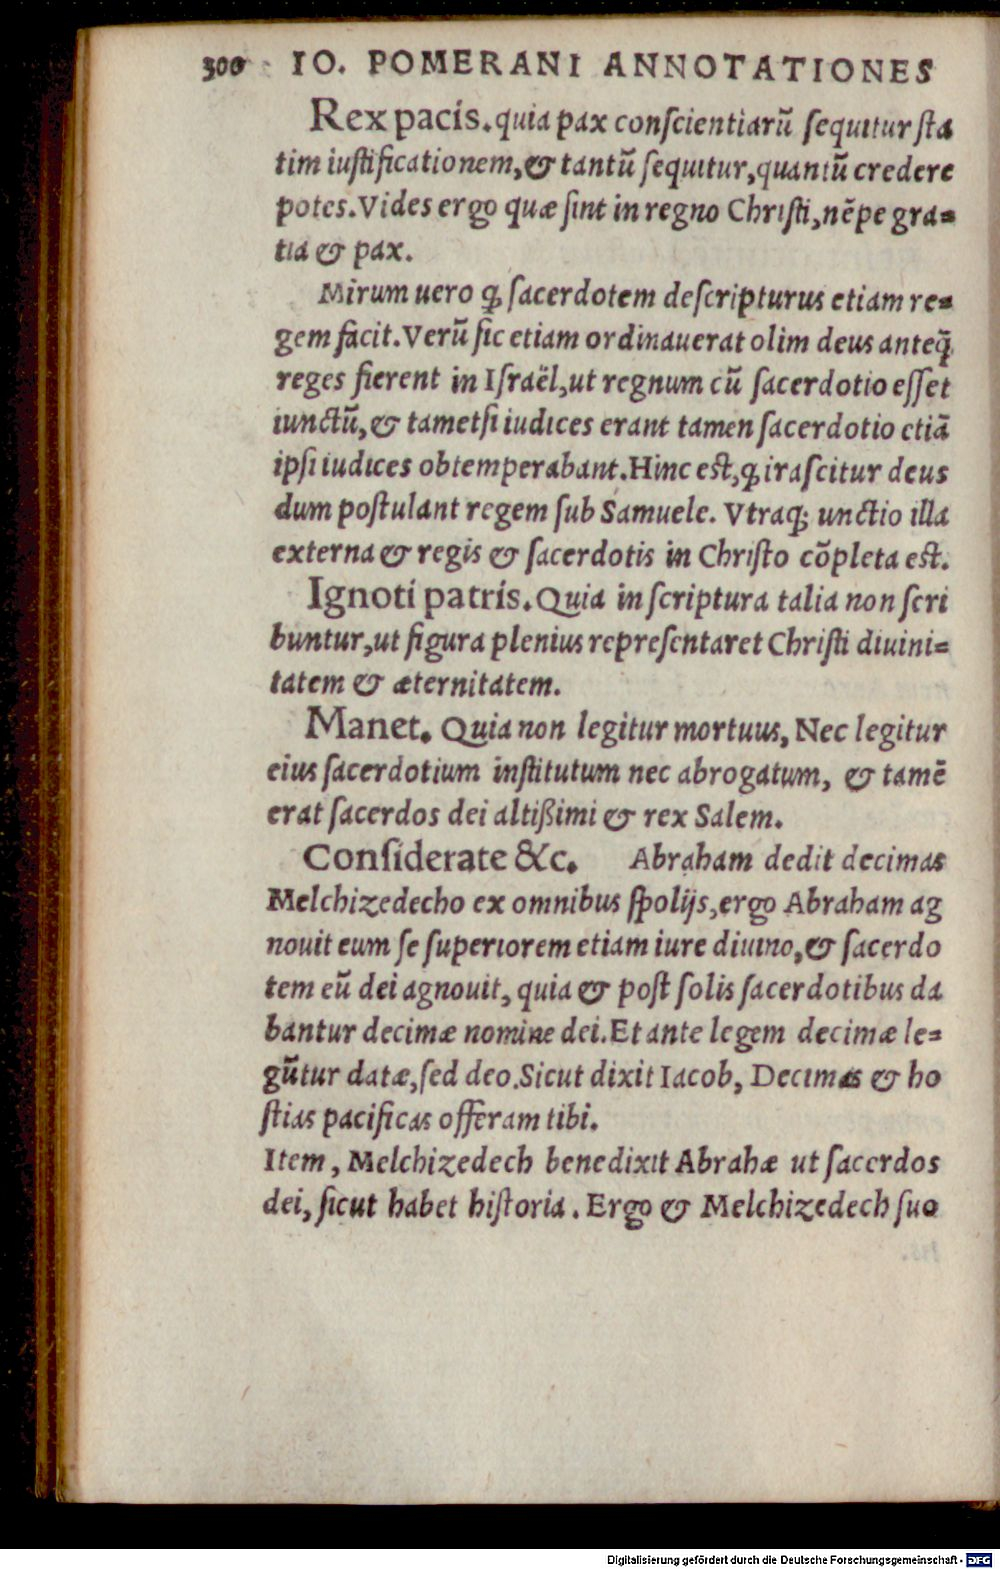 300 IO. POMERANI ANNOTATIONES
Rex pacis. quia pax conſcientiarũ ſequitur ſta
tim iuſtificationem, & tantũ ſequitur, quantũ credere
potes. Vides ergo quæ ſint in regno Chriſti, nẽpe gra=
tia & pax.
Mirum uero ꝙ ſacerdotem deſcripturus etiam re=
gem facit. Verũ ſic etiam ordinauerat olim deus anteq̃
reges fierent in Iſraël, ut regnum cũ ſacerdotio eſſet
iunctũ, & tametſi iudices erant tamen ſacerdotio etiã
ipſi iudices obtemperabant. Hinc est, ꝙ iraſcitur deus
dum poſtulant regem ſub Samuele. Vtraq; unctio illa
externa & regis & ſacerdotis in Chriſto cõpleta est.
Ignoti patris. Quia in ſcriptura talia non ſcri
buntur, ut figura plenius repreſentaret Chriſti diuini=
tatem & æternitatem.
Manet. Quia non legitur mortuus, Nec legitur
eius ſacerdotium inſtitutum nec abrogatum, & tamẽ
erat ſacerdos dei altißimi & rex Salem.
Conſiderate &c. Abraham dedit decimas
Melchizedecho ex omnibus ſpolijs, ergo Abraham ag
nouit eum ſe ſuperiorem etiam iure diuino, & ſacerdo
tem eũ dei agnouit, quia & poſt ſolis ſacerdotibus da
bantur decimæ nomine dei. Et ante legem decimæ le=
gũtur datæ, ſed deo. Sicut dixit Iacob, Decimas & ho
ſtias pacificas offeram tibi.
Item, Melchizedech benedixit Abrahæ ut ſacerdos
dei, ſicut habet hiſtoria. Ergo & Melchizedech ſuo
Digitalisierung gefördert durch die Deutsche Forschungsgemeinschaft - DFG